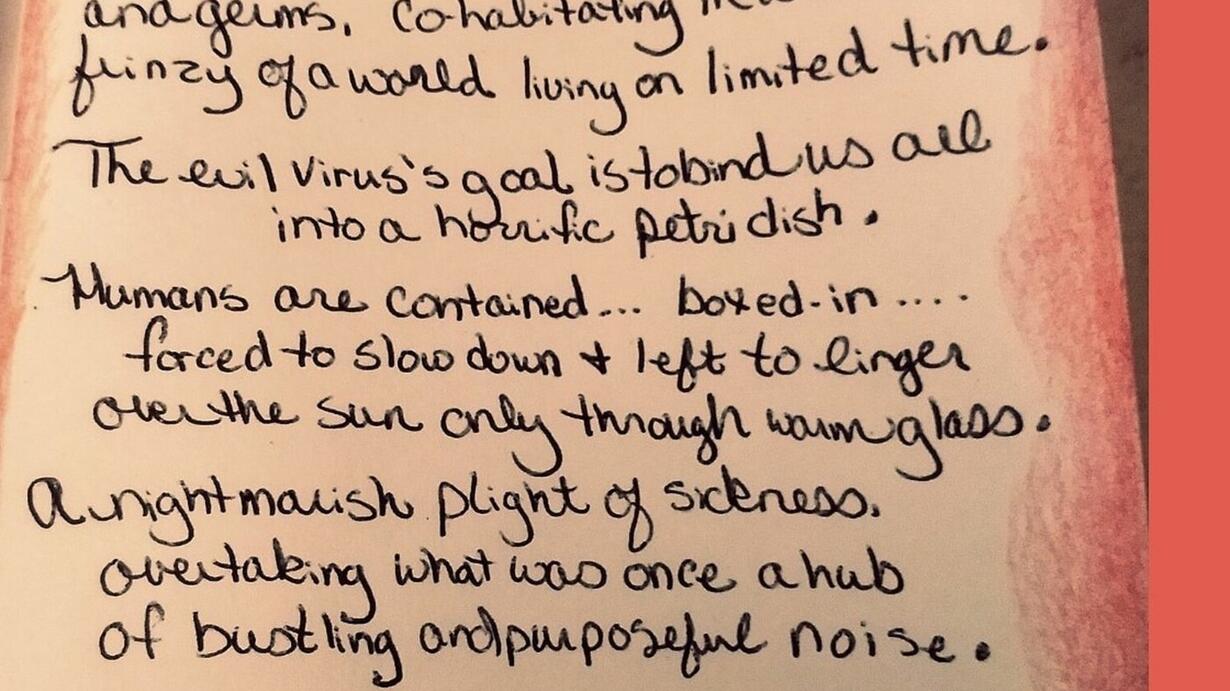 and germs. Cohabitating in
frinzy of a world living on limited time.
The evil virus's goal is to bind us all
into a horrific petri dish.
Humans are contained... boxed-in ....
forced to slow down + left to linger
over the sun only through warm glass.
A nightmarish plight of sickness.
overtaking what was once a hub
of bustling and purposeful noise.